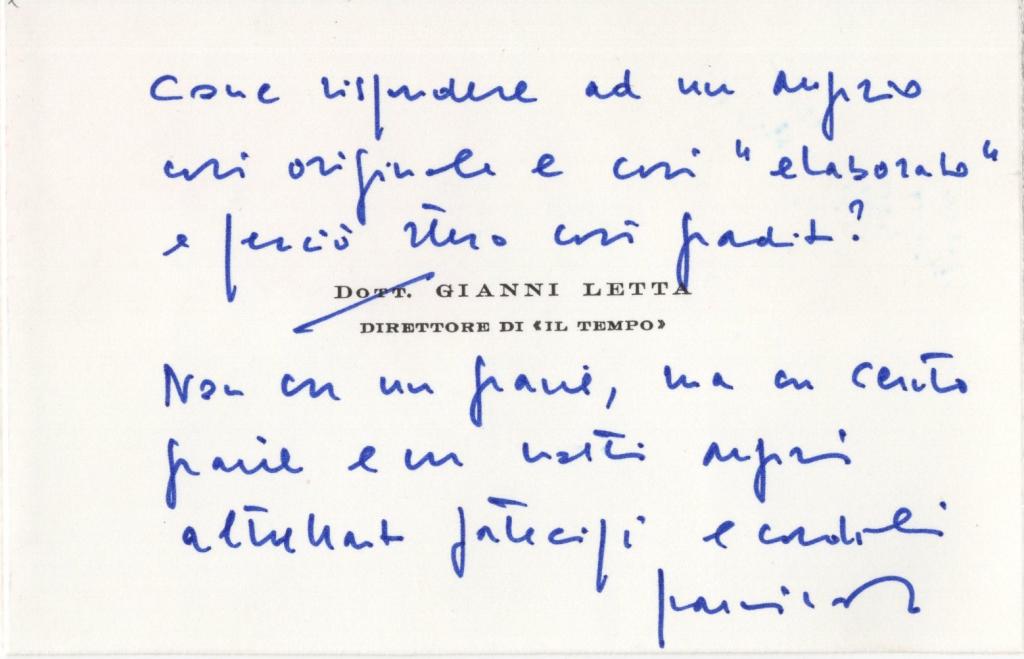 Come rispondere ad un augurio
così originale e così "elaborato"
e perciò stesso così gradito?
DOTT. GIANNI LETTA
DIRETTORE DI «IL TEMPO»
Non con un grazie, ma con cento
grazie e con nostri auguri
altrettanto partecipi e cordiali